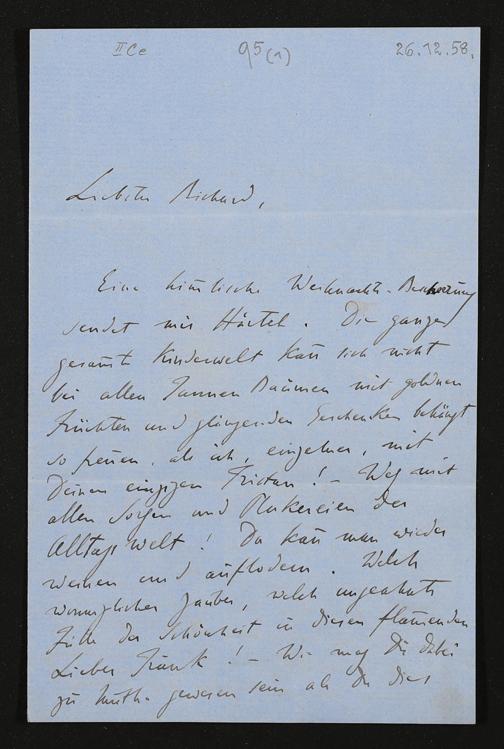 IICe 95(1) 26.12.58.
Liebster Richard,
Eine himlische Weihnachts-Bescheerung
sendet mir Härtel. Die ganze
gesamte Kinderwelt kan sich nicht
bei allen Tannen Bäumen mit goldnen
Früchten und glänzenden Geschenken behängt
so freuen, als ich, einzelner, mit
Deinem einzigen Tristan! – Weg mit
allen Sorgen und Plakereien der
Alltags Welt! Da kan man wieder
weinen und auflodern. Welch
wonniglicher Zauber, welch ungeahnte
Fülle der Schönheit in diesem flamenden
Liebes Trank! – Wie mag Dir dabei
zu Muthe gewesen sein als Du dies